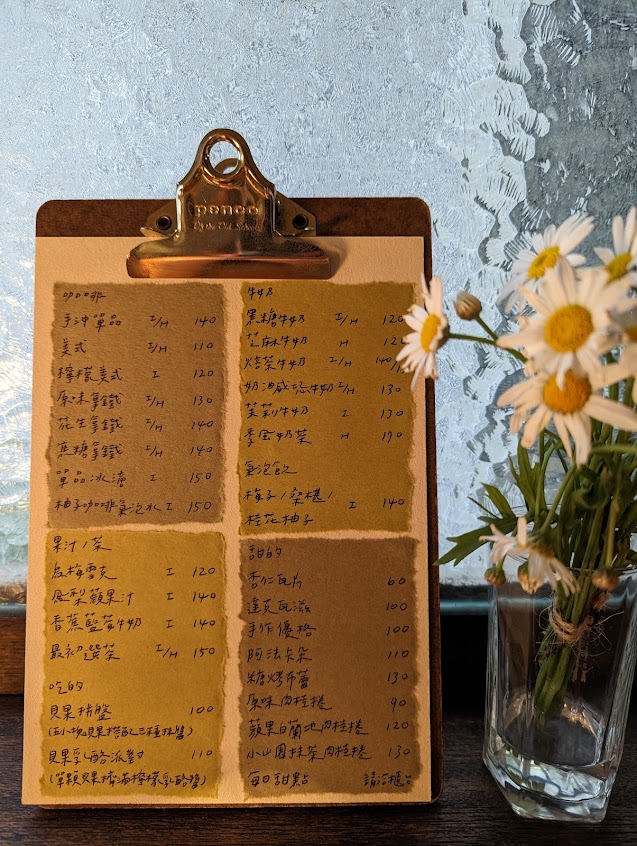 penco
咖啡
手沖單品 I/H 140
美式 I/H 110
檸檬美式 I 120
原味拿鐵 I/H 130
花生拿鐵 I/H 140
焦糖拿鐵 I/H 140
單品冰滴 I 150
柚子咖啡氣泡水 I 150
果汁/茶
烏梅雪克 I 120
鳳梨蘋果汁 I 140
香蕉藍莓牛奶 I 140
最初選茶 I/H 150
吃的
貝果拼盤 100
貝果乳酪派對 110
(單顆貝果擠滿檸檬乳酪醬)
牛奶
黑糖牛奶 I/H 120
芝麻牛奶 H 120
焙茶牛奶 I/H 140
奶油咸恐牛奶 I/H 130
茉莉牛奶 I 130
季全奶茶 H 170
氣泡飲
梅子/桑椹/
桂花柚子 I 140
甜的
杏仁瓦片 60
達克瓦滋 100
手作優格 100
阿法朵朵 110
糖烤布蕾 130
原味肉桂捲 90
蘋果白蘭地肉桂捲 120
小山園抹茶肉桂捲 130
每日甜點 請洽櫃台